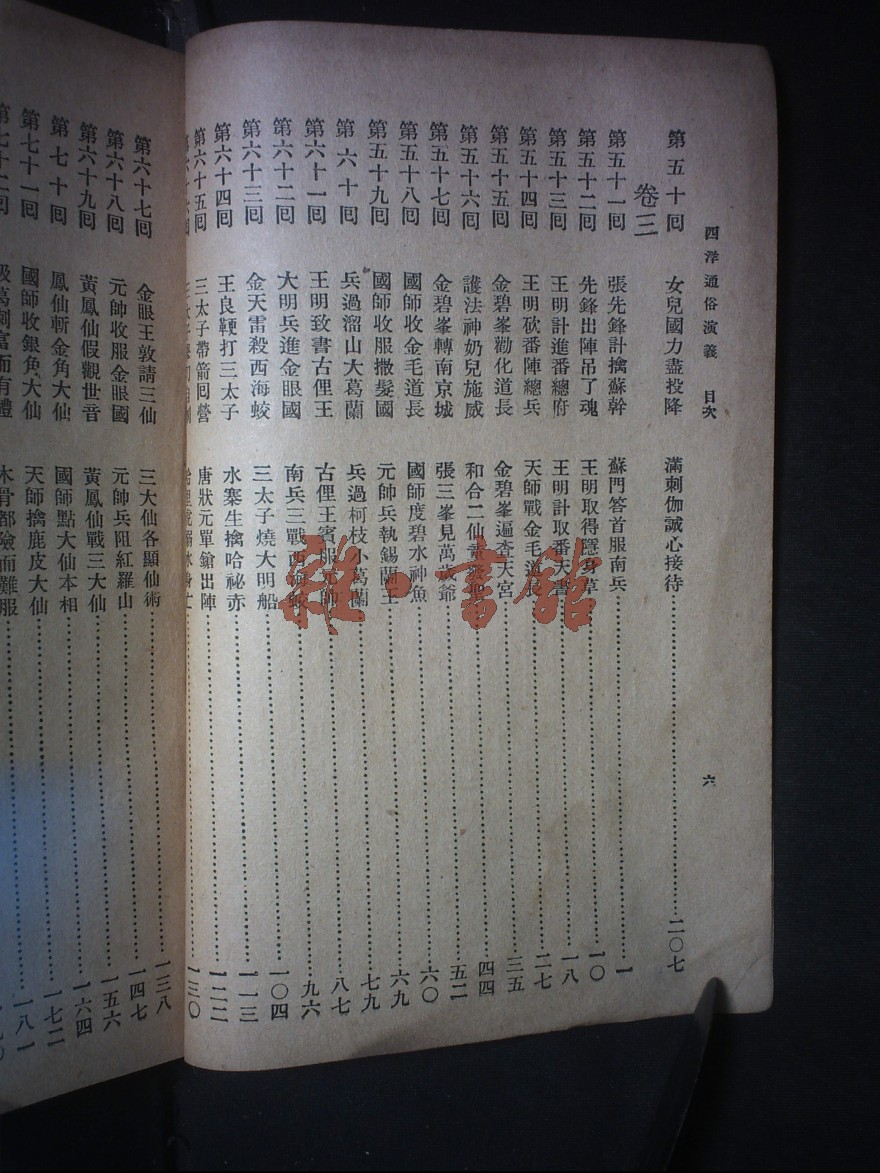 四洋通俗演義 目次 六
第五十回 女兒國力盡投降 滿刺伽誠心接待 二〇七
卷三
第五十一回 張先鋒計擒蘇幹 蘇門答首服南兵 一
第五十二回 先鋒出陣吊了魂 王明取得隱身草 一〇
第五十三回 王明計進番總府 王明計取番天書 一八
第五十四回 王明砍番陣總兵 天師戰金毛道長 二七
第五十五回 金碧峯勸化道長 金碧峯遍查天宮 三五
第五十六回 護法神奶兒施威 和合二仙 四四
第五十七回 金碧峯轉南京城 張三峯見萬歲爺 五二
第五十八回 國師收金毛道長 國師度碧水神魚 六〇
第五十九回 國師收服撒髮國 元帥兵執錫蘭王 六九
第六十回 兵過溜山大葛蘭 兵過柯枝小葛蘭 七九
第六十一回 王明致書古俚王 古俚王賓服元帥 八七
第六十二回 大明兵進金眼國 南兵三戰西海蛟 九六
第六十三回 金天雷殺西海蛟 三太子燒大明船 一〇四
第六十四回 王良鞭打三太子 水寨生擒哈祕赤 一一三
第六十五回 三太子帶箭回營 唐狀元單鎗出陣 一二二
一三〇
第六十七回 金眼王敦請三仙 三大仙各顯仙術 一三八
第六十八回 元帥收服金眼國 元帥兵阻紅羅山 一四七
第六十九回 黃鳳仙假觀世音 黃鳳仙戰三大仙 一五六
第七十回 鳳仙斬金角大仙 國師點大仙本相 一六四
第七十一回 國師收銀角大仙 天師擒鹿皮大仙 一七二
第七十二回 吸葛剌富而有禮 木骨都險而難服 一八一
雜·書館